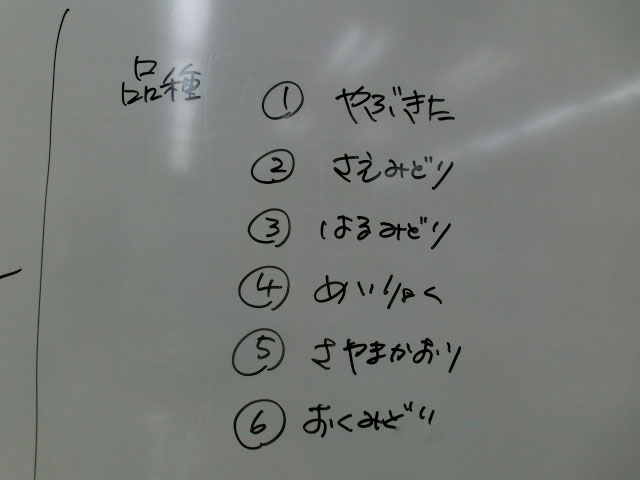 品種
① やぶきた
② さえみどり
③ はるみどり
④ めいりょく
⑤ さやまかおり
⑥ おくみどり